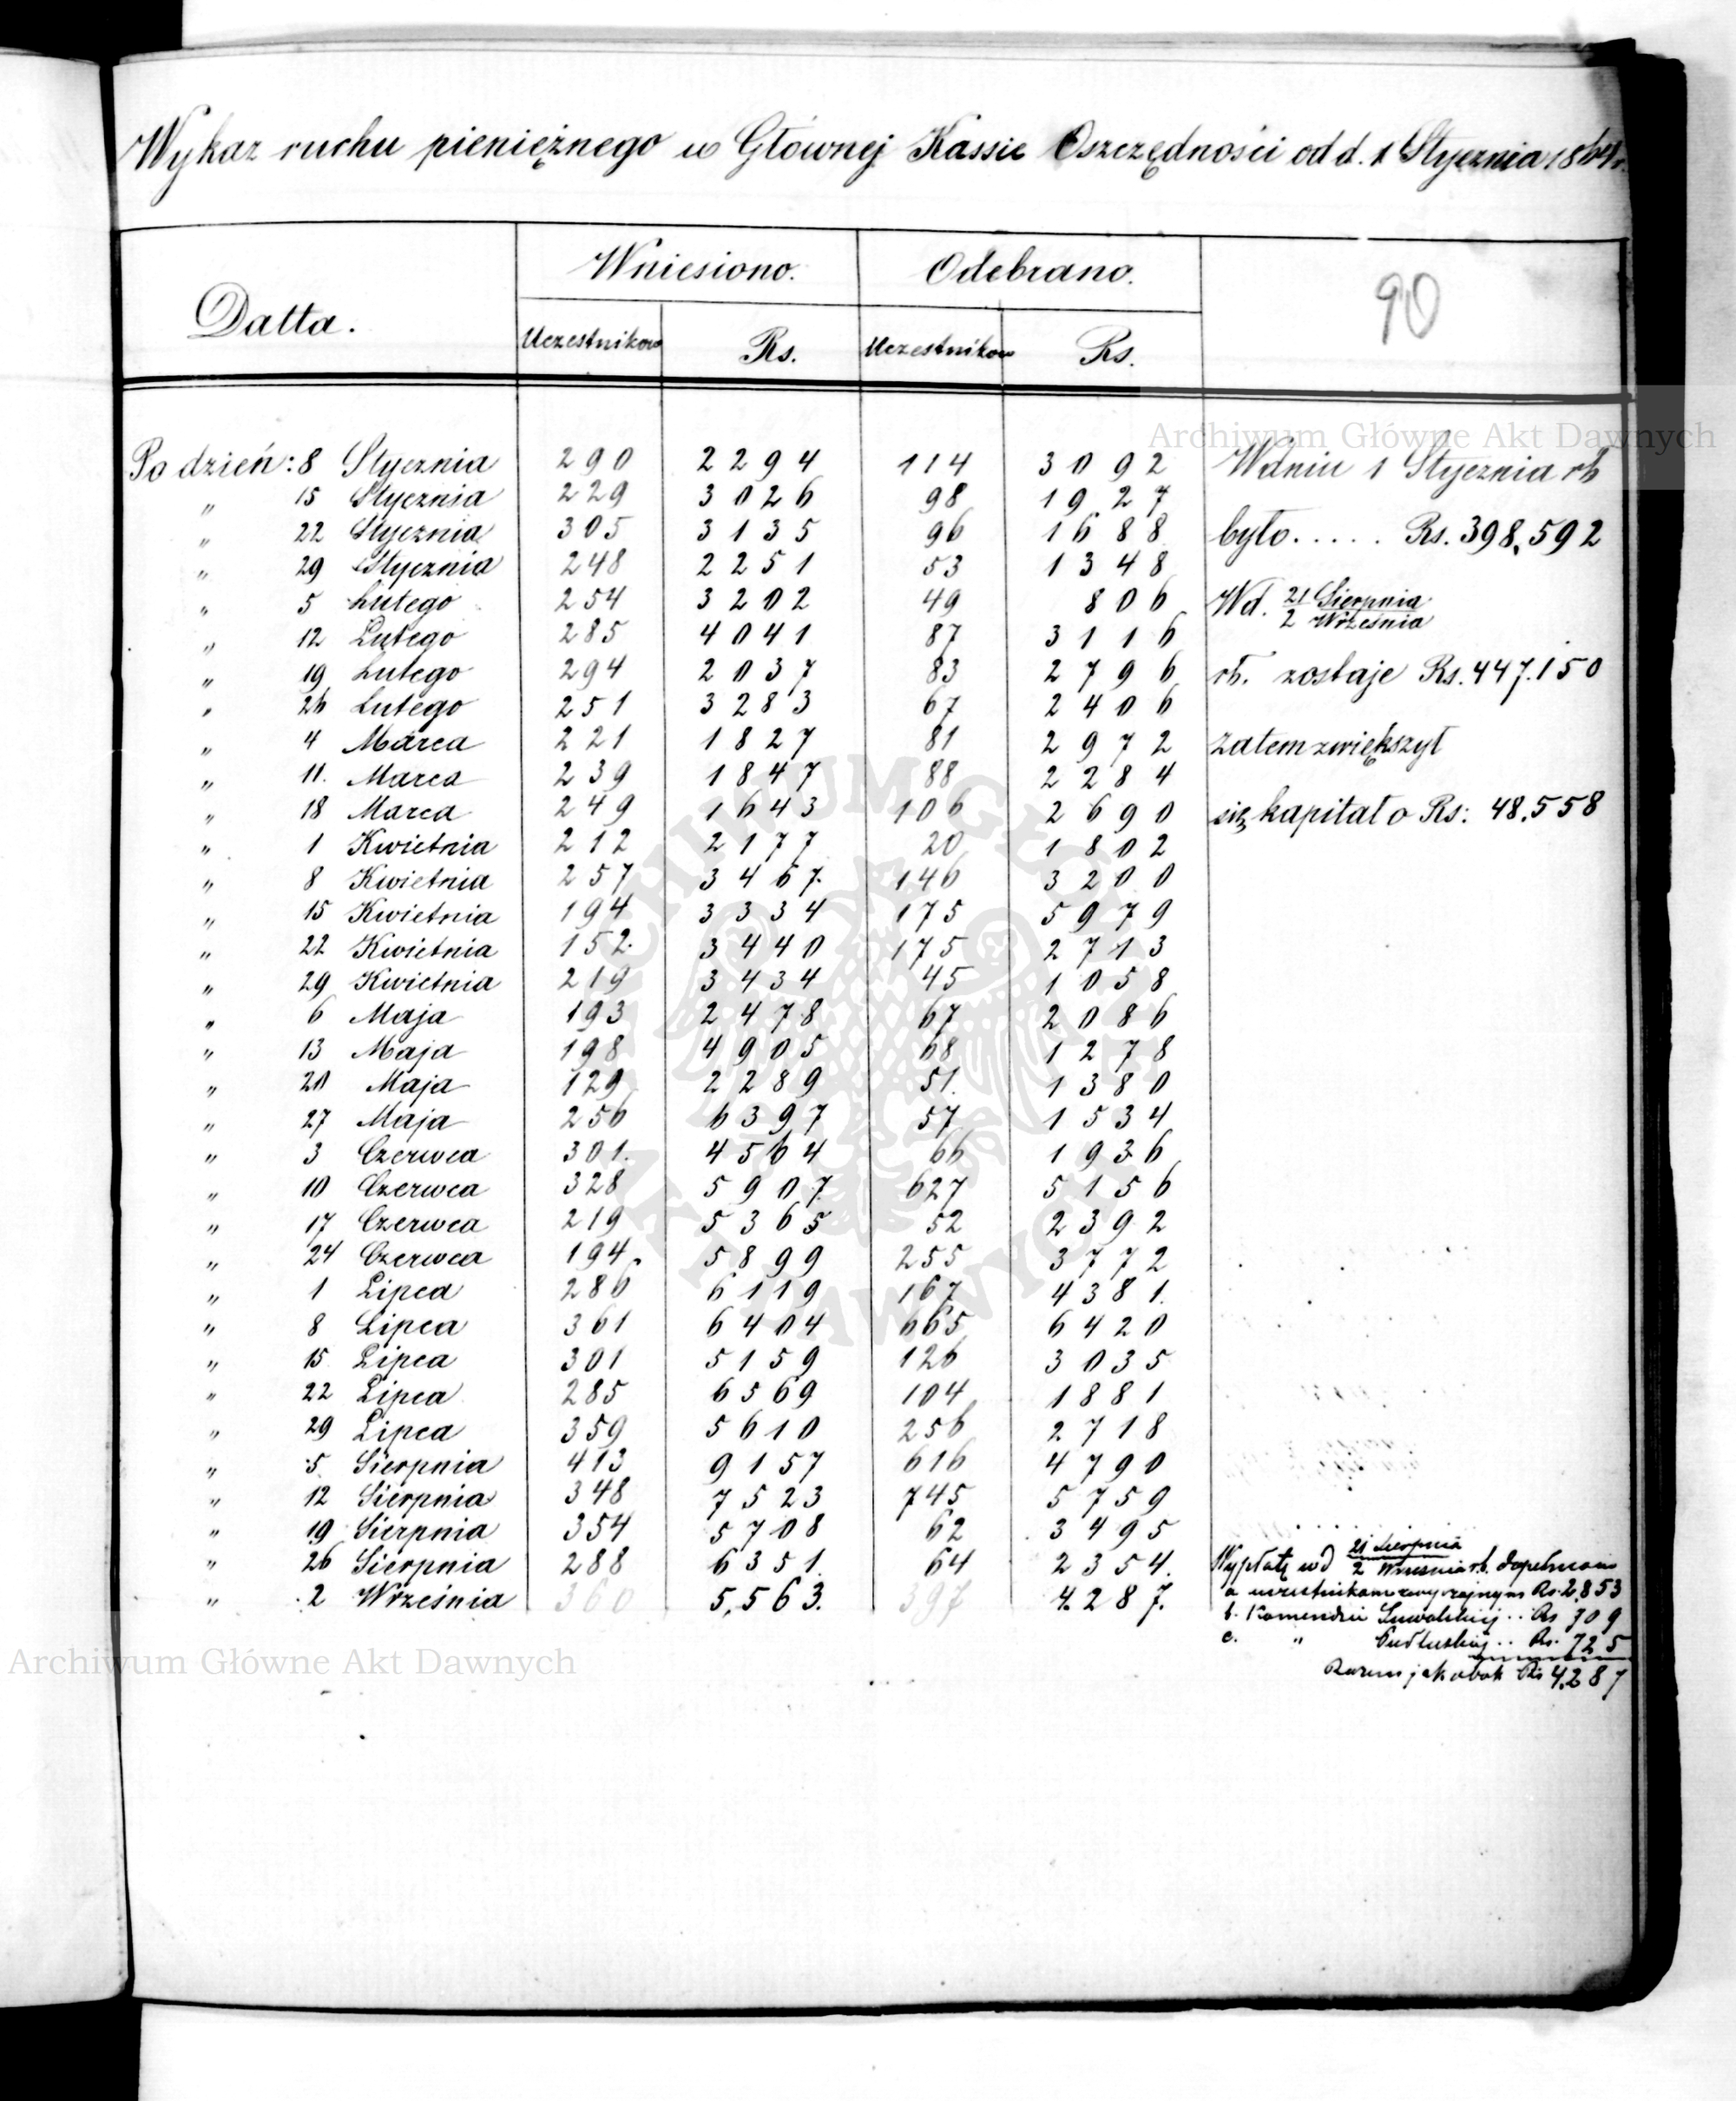 Wykaz ruchu pieniężnego w Głównej Kassie Oszczędności od d. 1 Stycznia 1864 r.
Datta. Wniesiono. Odebrano. 90
Uczestników Rs. Uczestników Rs.
Archiwum Główne Akt Dawnych
Po dzień: 8 Stycznia 290 2294 114 3092 W dniu 1 Stycznia rb
" 15 Stycznia 229 3026 98 1927
" 22 Stycznia 305 3135 96 1688 było..... Rs. 398,592
" 29 Stycznia 248 2251 53 1348
" 5 Lutego 254 3202 49 806 W d. 21 Sierpnia / 2 Września
" 12 Lutego 285 4041 87 3116
" 19 Lutego 294 2037 83 2796 rb. zostaje Rs. 447.150
" 26 Lutego 251 3283 67 2406
" 4 Marca 221 1827 81 2972 zatem zwiększył
" 11. Marca 239 1847 88 2284
" 18 Marca 249 1643 106 2690 się kapitał o Rs: 48.558
" 1 Kwietnia 212 2177 20 1802
" 8 Kwietnia 257 3467. 146 3200
" 15 Kwietnia 194 3334 175 5979
" 22 Kwietnia 152. 3440 175 2713
" 29 Kwietnia 219 3434 45 1058
" 6 Maja 193 2478 67 2086
" 13 Maja 198 4905 68 1278
" 20 Maja 129 2289 51. 1380
" 27 Maja 256 6397 57 1534
" 3 Czerwca 301. 4564 66 1936
" 10 Czerwca 328 5907. 627 5156
" 17 Czerwca 219 5365 52 2392
" 24 Czerwca 194. 5899 255 3772
" 1 Lipca 286 6119 167 4381.
" 8 Lipca 361 6404 665 6420
" 15 Lipca 301 5159 126 3035
" 22 Lipca 285 6569 104 1881
" 29 Lipca 359 5610 256 2718
" 5 Sierpnia 413 9157 616 4790
" 12 Sierpnia 348 7523 745 5759
" 19 Sierpnia 354 5708 62 3495
" 26 Sierpnia 288 6351. 64 2354.
" 2 Września 360 5,563. 397 4.287.
Wypłatę w d 21 Sierpnia / 2 Września r.b. dopełniono
a uczestnikom zwyczajnym Rs. 2,853
b. Komendzie Suwalskiej .. Rs 709
c. " Pułtuskiej .. Rs. 725
Razem jak obok Rs 4,287
Archiwum Główne Akt Dawnych
ARCHIWUM GŁÓWNE AKT DAWNYCH